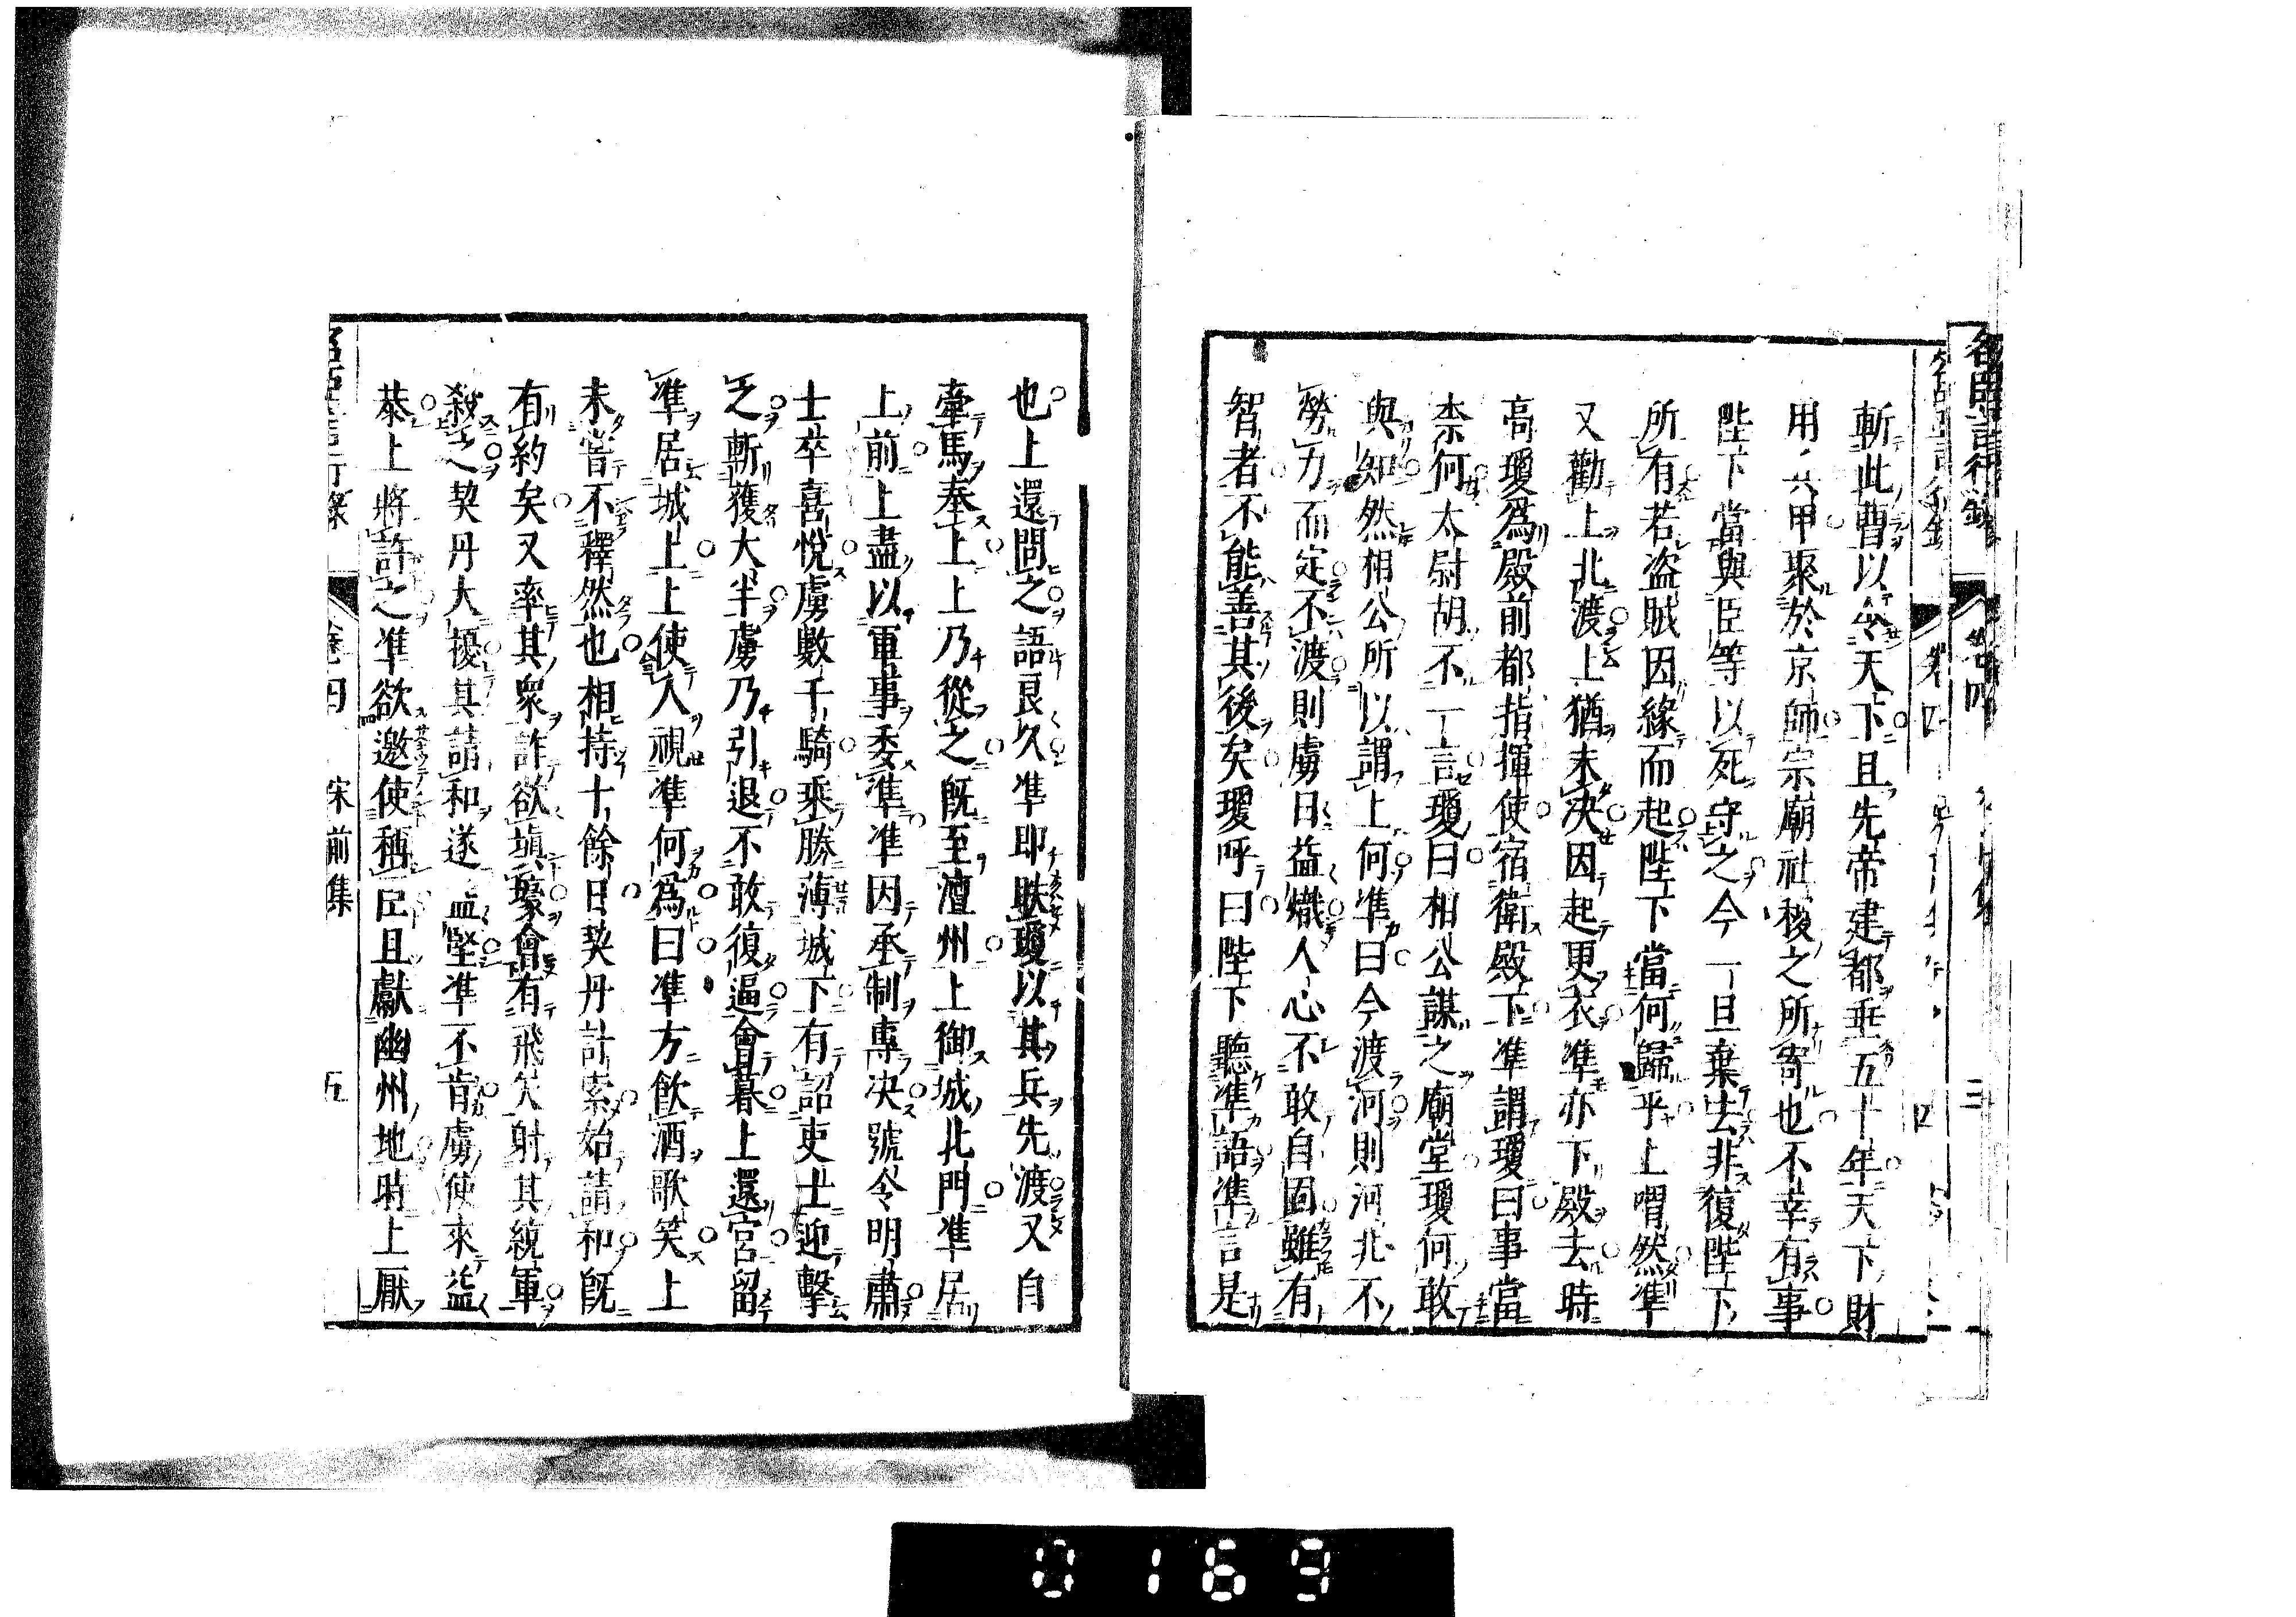 名臣言行錄
斬此曹以令天下且先帝建都垂五十年天下財
用兵甲聚於京師宗廟社稷之所寄也不幸有事
陛下當與臣等以死守之今一旦棄去非復陛下
所有若盗賊因緣而起陛下當何歸乎上喟然準
又勸上北渡上猶未决因起更衣準亦下殿去時
高瓊為殿前都指揮使宿衛殿下準謂瓊曰事當
柰何太尉胡不一言瓊曰相公謀之廟堂瓊何敢
與知然相公所以謂上何準曰今渡河則河北不
勞力而定不渡則虜日益熾人心不敢自固雖有
智者不能善其後矣瓊呼曰陛下聽準語準言是
也上還問之語良久準即眣瓊以其兵先渡又自
牽馬奉上上乃從之旣至澶州上御城北門準居
上前上盡以軍事委準準因承制專决號令明肅
士卒喜悅虜數千騎乘勝薄城下有詔吏士迎擊
之斬獲大半虜乃引退不敢復逼會暮上還宮留
準居城上上使人視準何為曰準方飲酒歌笑上
未嘗不釋然也相持十餘日契丹計索始請和旣
有約矣又率其衆詐欲塡壕會有飛矢射其統軍
殺之契丹大擾其請和遂益堅準不肯虜使來益
恭上將許之準欲邀使稱臣且獻幽州地時上厭
卷四 宋前集 五
0169